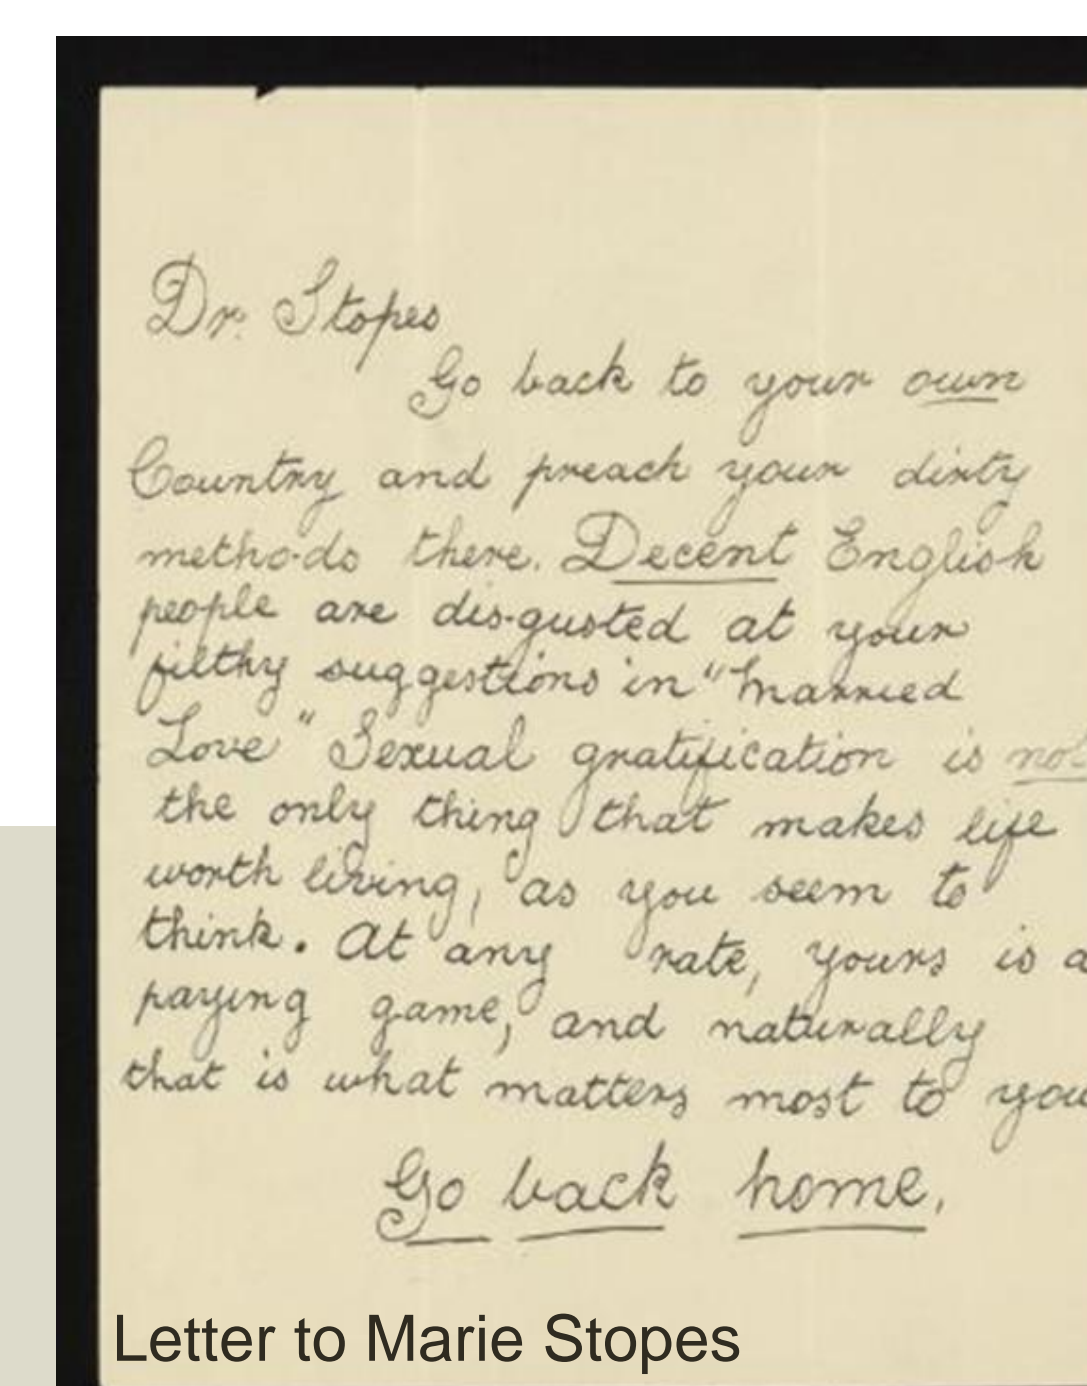 Dr. Stopes
Go back to your own
Country and preach your dirty
metho-ds there. Decent English
people are dis-gusted at your
filthy suggestions in "Married
Love" Sexual gratification is not
the only thing that makes life
worth living, as you seem to
think. At any rate, yours is a
paying game, and naturally
that is what matters most to you
Go back home.
Letter to Marie Stopes